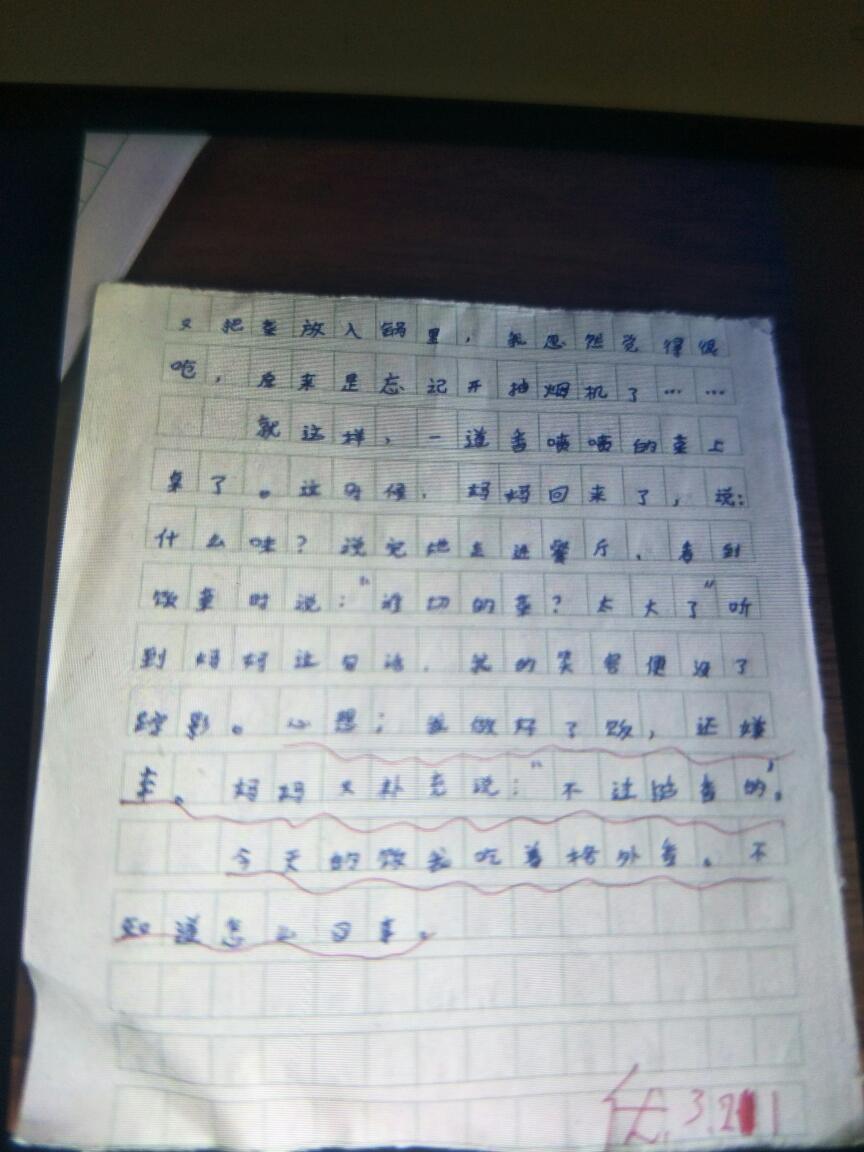 又把菜放入锅里，我忽然觉得很
呛，原来是忘记开抽烟机了……
就这样，一道香喷喷的菜上
桌了。这时候，妈妈回来了，说：
什么味？说完她走进餐厅，看到
饭菜时说：“谁切的菜？太大了”听
到妈妈这句话，我的笑容便没了
踪影。心想；我做好了饭，还嫌
弃。妈妈又补充说：“不过挺香的”。
今天的饭我吃着格外香。不
知道怎么回事。
优 3.21